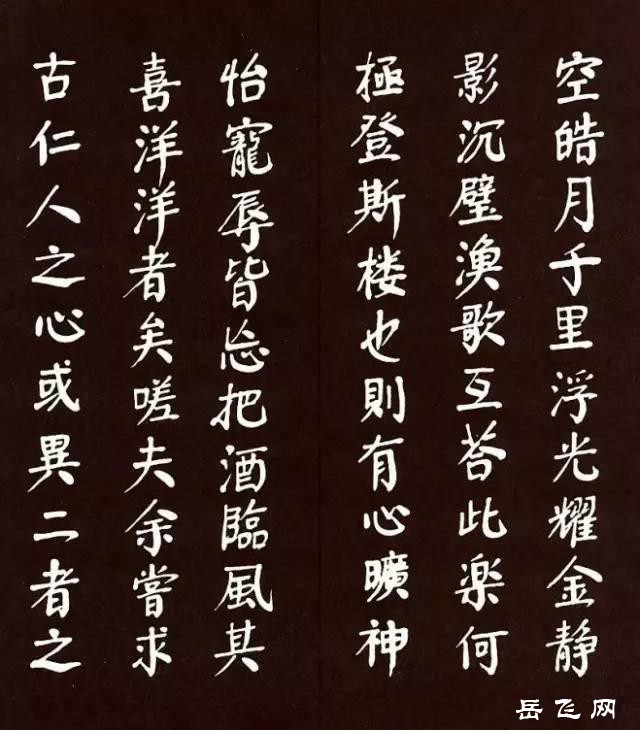 空皓月千里浮光耀金静
影沉璧渔歌互荅此楽何
極登斯楼也則有心曠神
怡寵辱皆忘把酒臨風其
喜洋洋者矣嗟夫余嘗求
古仁人之心或異二者之
岳飞网